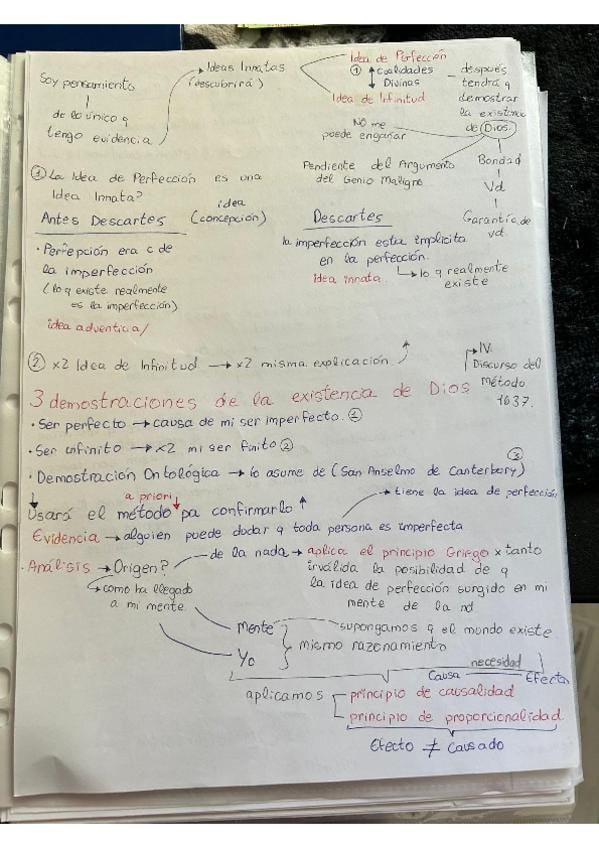 Soy pensamiento
de lo único q
tengo evidencia
Ideas Innatas
(descubrirá)
Idea de Perfección
① Cualidades
Divinas
Idea de Infinitud
después
tendrá q
demostrar
la existenc
de Dios.
NO me
puede engañar
Pendiente del Argumento
del Genio Maligno
Bondad
Vd
Garantía de
vd.
① La Idea de Perfección es una
Idea Innata?
Antes Descartes
idea
(concepción)
Descartes
· Perfepción era c de
la imperfección
(lo q existe realmente
es la imperfección)
idea adventicia/
la imperfección esta implícita
en la perfección.
idea innata.
lo q realmente
existe
② x2 Idea de Infinitud → x2 misma explicación
IV.
Discurso del
Método
1637.
3 demostraciones de la existencia de Dios
· Ser perfecto → causa de mi ser imperfecto. ①
· Ser infinito → x2 mi ser finito ②
· Demostración Ontológica → lo asume de (San Anselmo de Canterbory) ③
a priori
Usará el método pa confirmarlo
tiene la idea de perfección
Evidencia → alguien puede dudar q toda persona es imperfecta
· Análisis → Origen?
como ha llegado
a mi mente
de la nada → aplica el principio Griego x tanto
inválida la posibilidad de q
la idea de perfección surgido en mi
mente de la nd
Mente
supongamos q el mundo existe
Yo
mismo razonamiento
necesidad
Causa
Efecto
aplicamos
principio de causalidad
principio de proporcionalidad
Efecto ≠ Causado